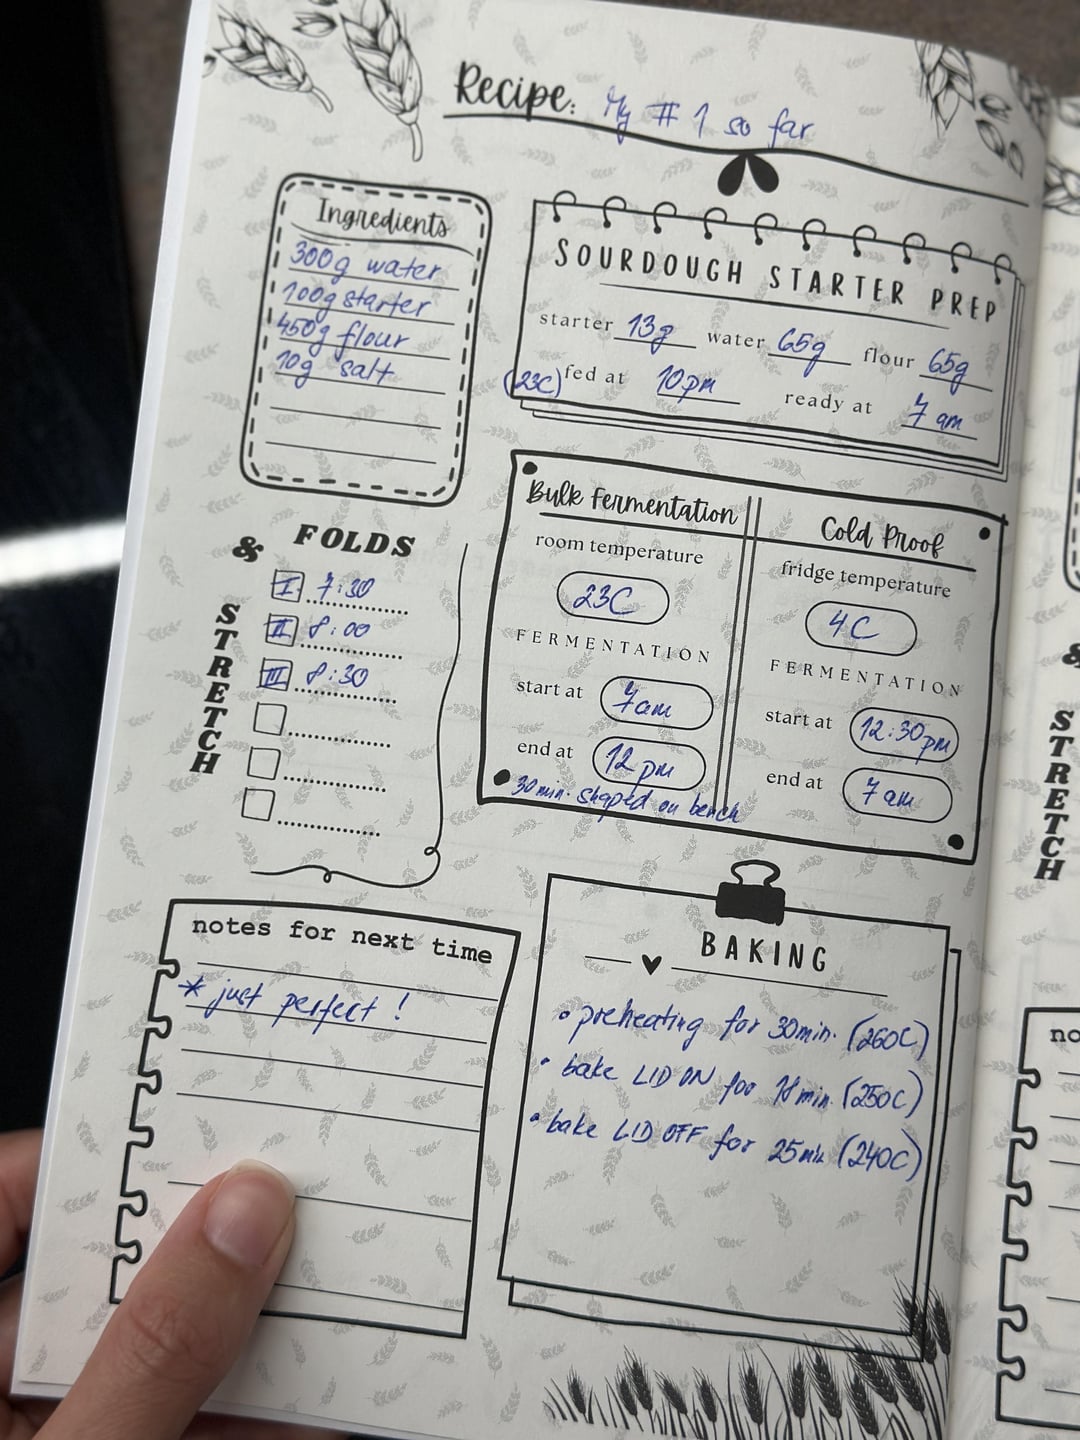 Recipe: My # 1 so far
Ingredients
300g water
100g starter
450g flour
10g salt
SOURDOUGH STARTER PREP
starter 13g water 65g flour 65g
(23C) fed at 10pm ready at 7 am
& FOLDS
STRETCH
I 7:30
II 8:00
III 8:30
Bulk Fermentation
room temperature
23C
FERMENTATION
start at 7am
end at 12pm
30min. shaped on bench
Cold Proof
fridge temperature
4C
FERMENTATION
start at 12:30pm
end at 7am
notes for next time
* just perfect !
BAKING
• preheating for 30min. (260C)
• bake LID ON for 18min (250C)
• bake LID OFF for 25min (240C)
&
STRETCH
no